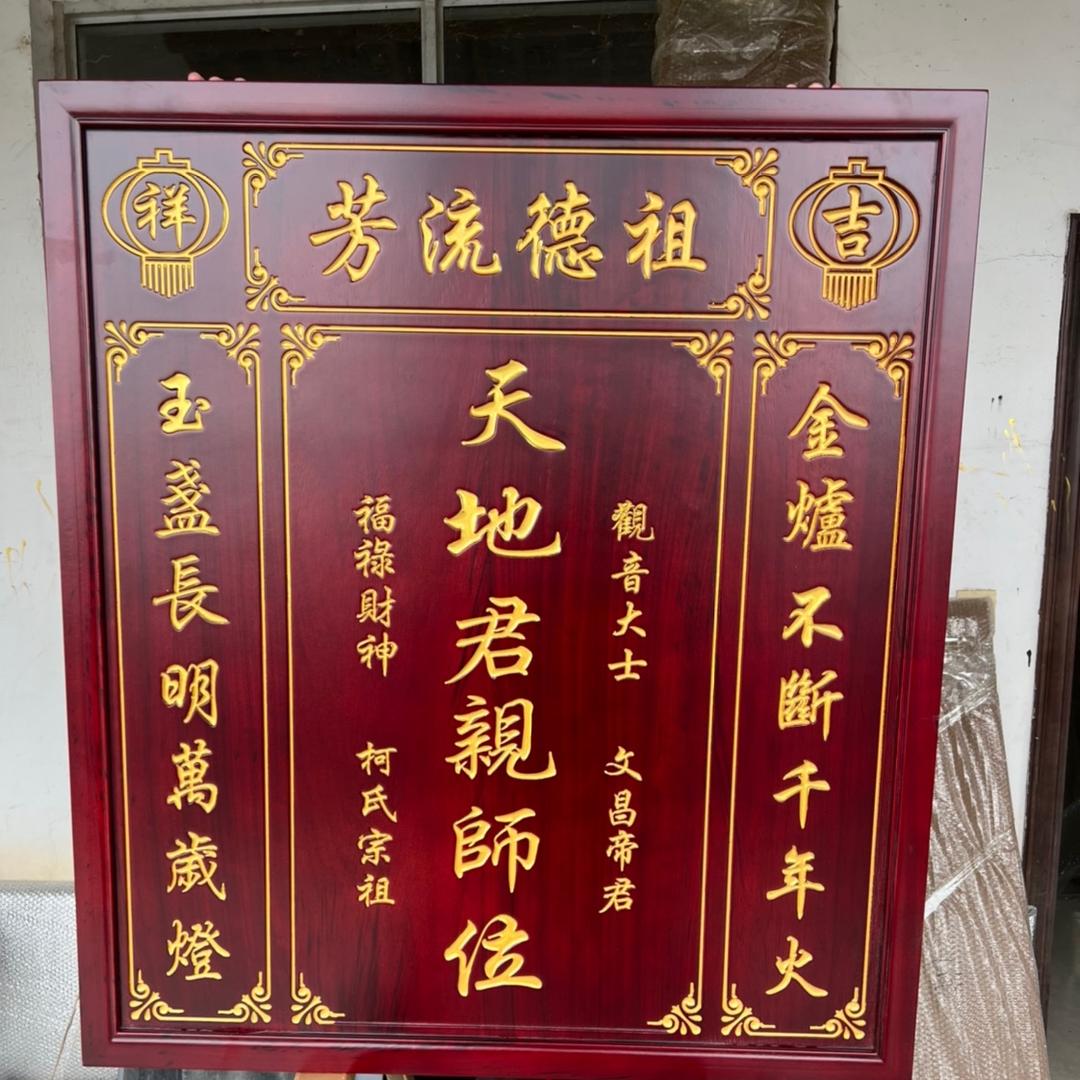 吉
祖德流芳
祥
金爐不斷千年火
觀音大士 文昌帝君
天地君親師位
福祿財神 柯氏宗祖
玉盞長明萬歲燈